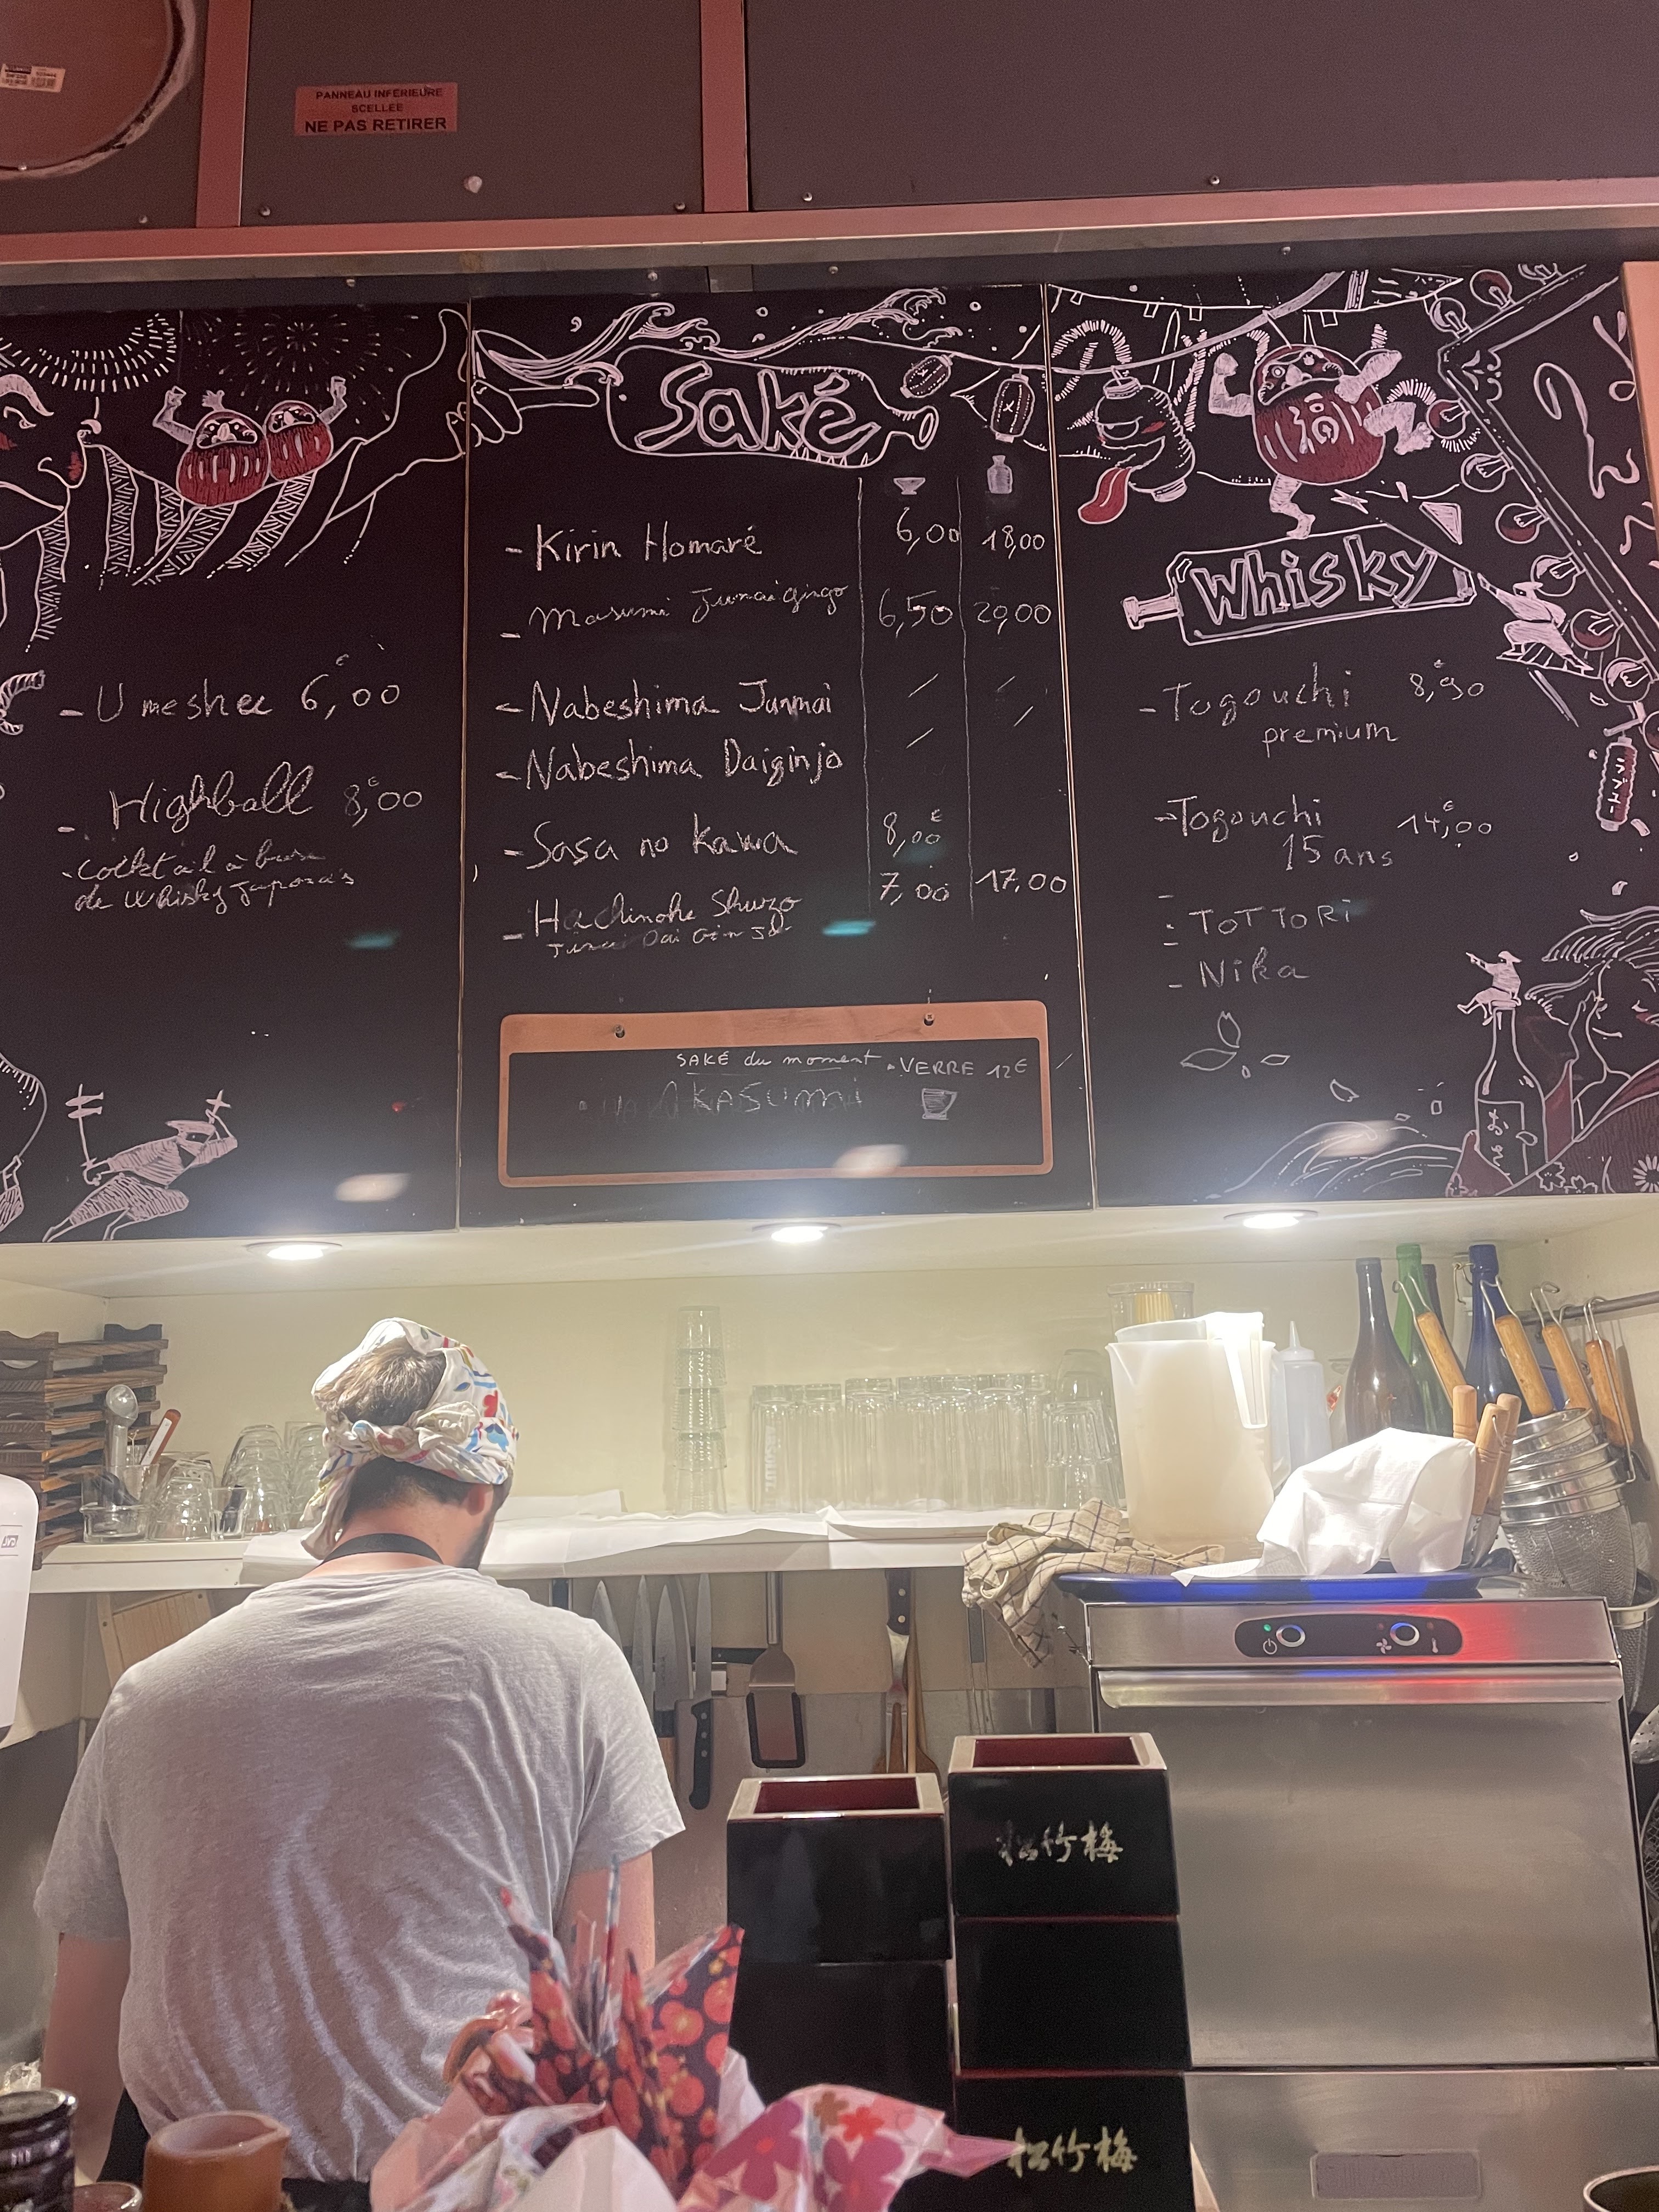 PANNEAU INFERIEURE
SCELLEE
NE PAS RETIRER
- Umeshee 6,00€
- Highball 8,00€
cocktail à base
de whisky Japonais
Saké
- Kirin Homaré 6,00 18,00
- Masumi Junaigingo 6,50 20,00
- Nabeshima Junmai / /
- Nabeshima Daiginjo / /
- Sasa no kawa 8,00€
- Hachinohe Shuzo 7,00 17,00
SAKÉ du moment • VERRE 12€
KASUMI
Whisky
- Togouchi 8,90€
premium
- Togouchi 14,00€
15 ans
- TOTTORI
- Nika
松竹梅
松竹梅